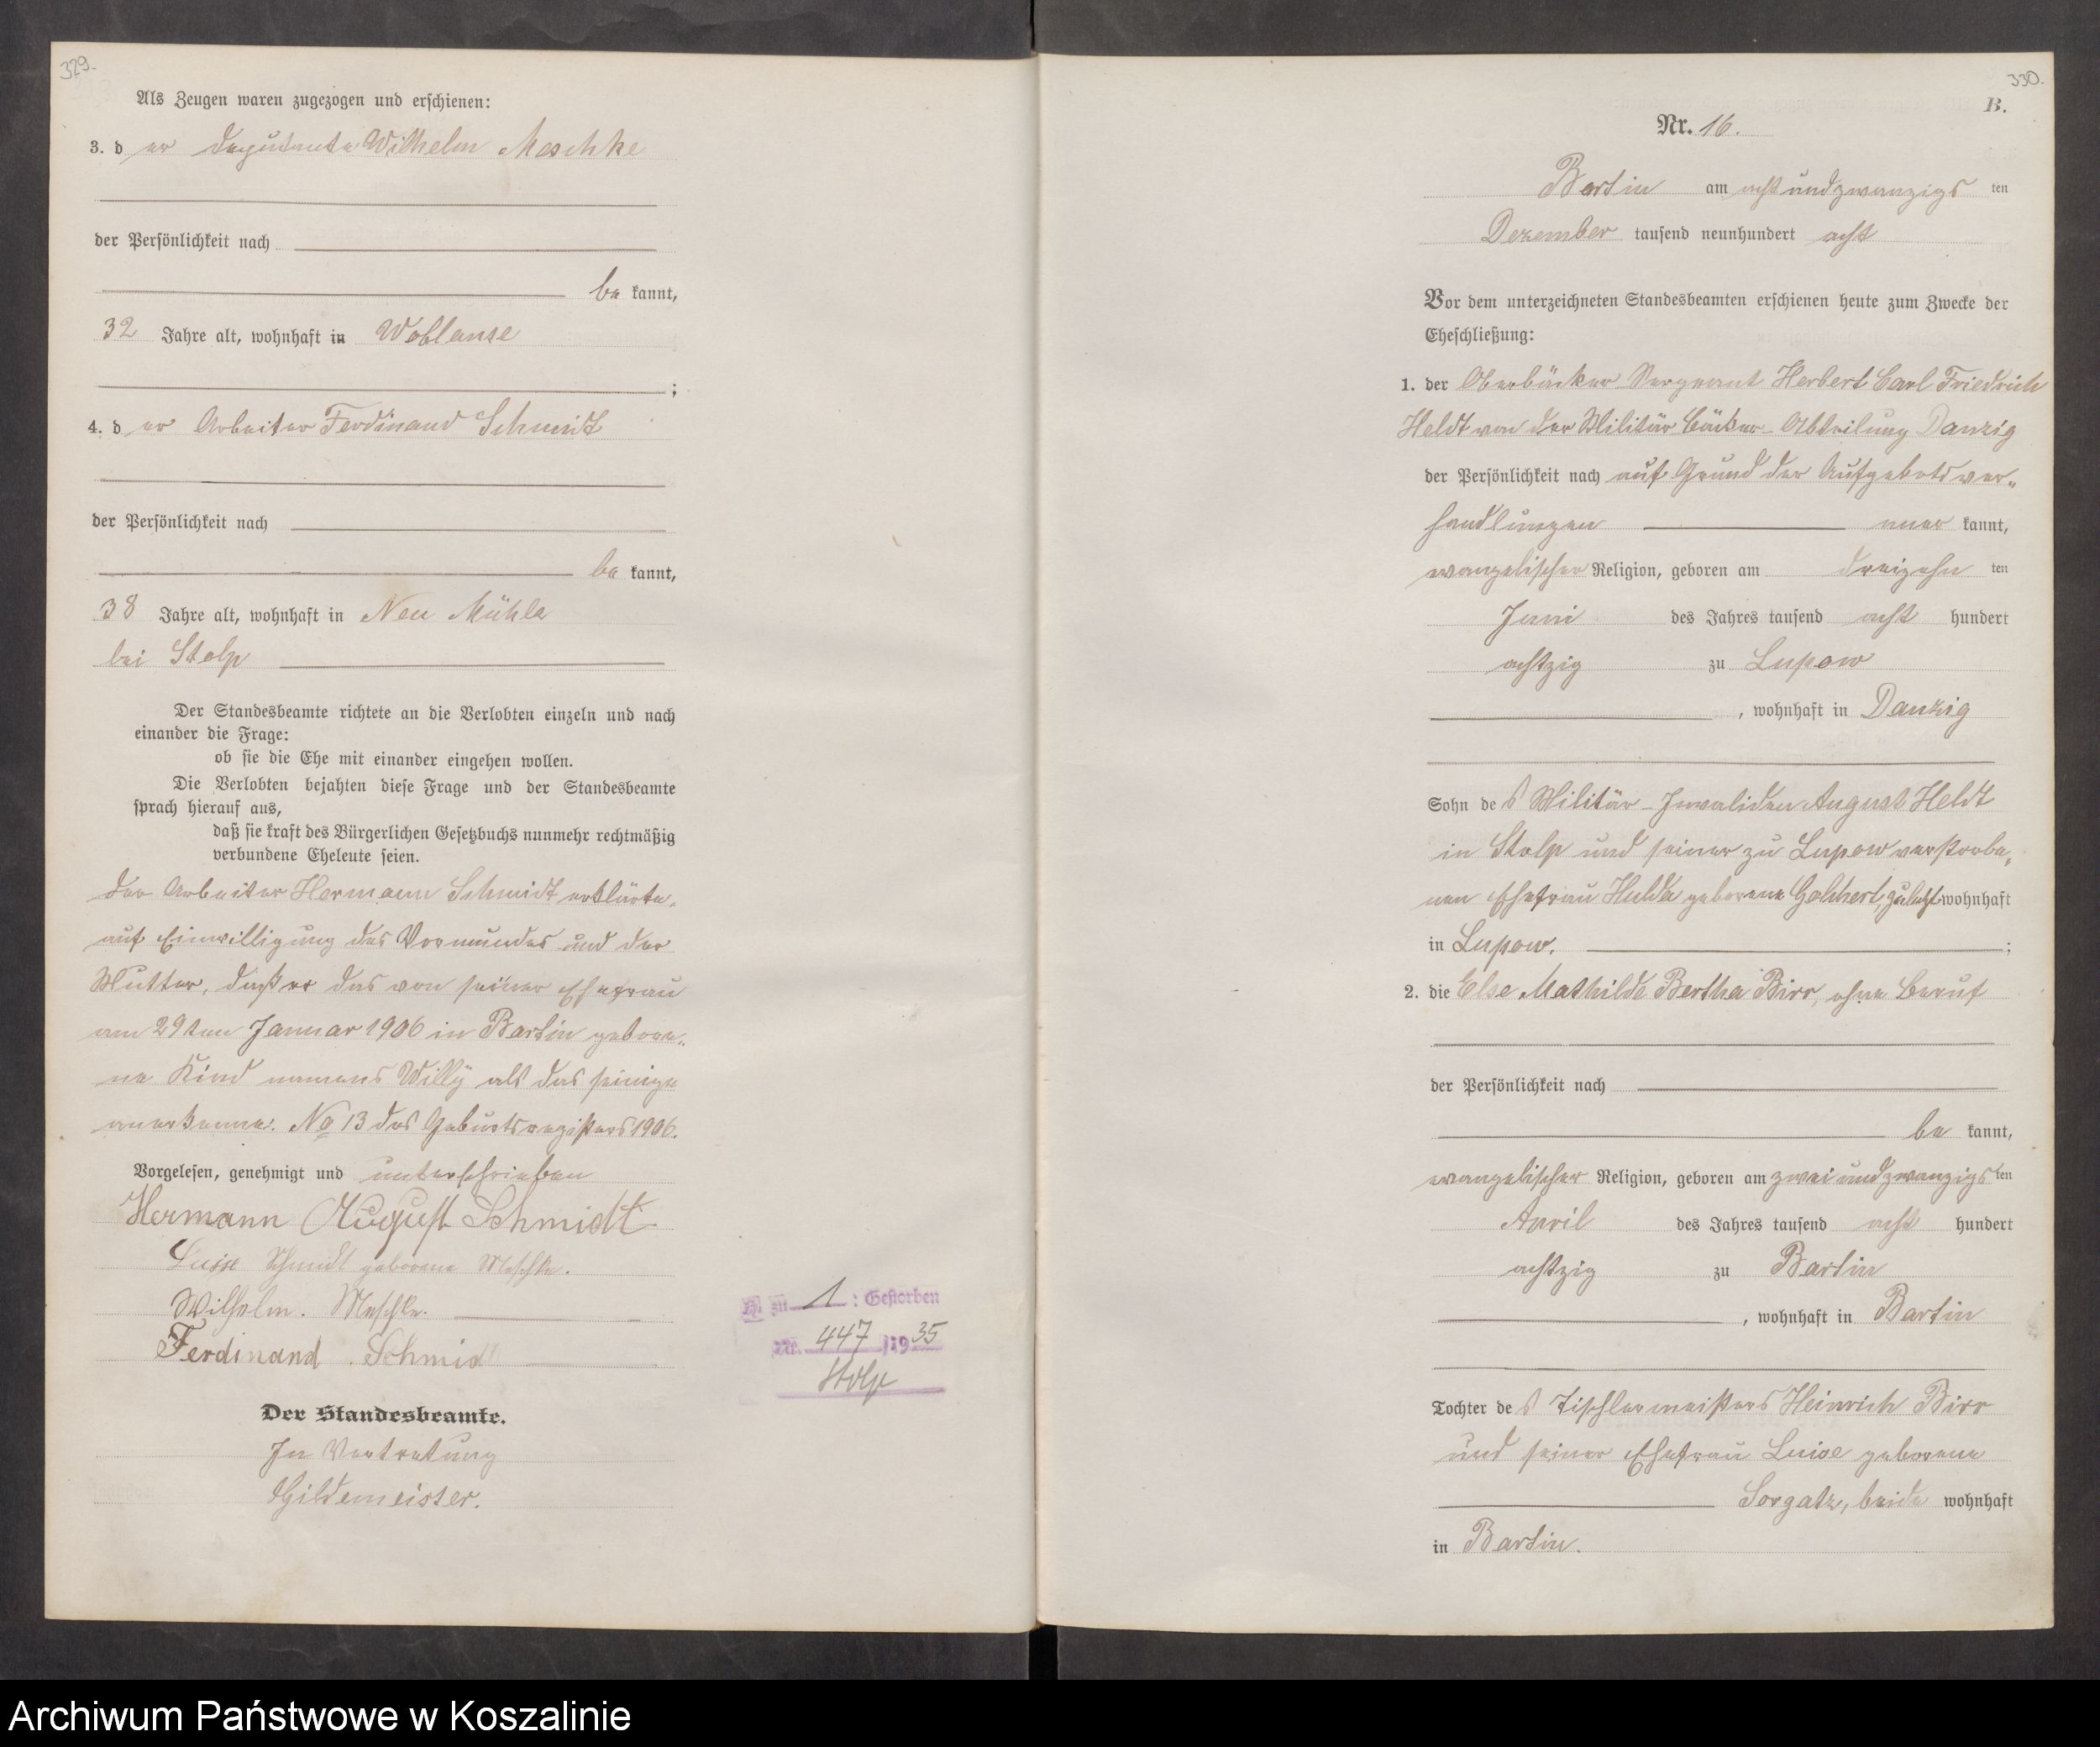 329.
Als Zeugen waren zugezogen und erschienen:
3. d er Deputante Wilhelm Meschke
der Persönlichkeit nach
be kannt,
32 Jahre alt, wohnhaft in Woblanse
;
4. d er Arbeiter Ferdinand Schmidt
der Persönlichkeit nach
be kannt,
38 Jahre alt, wohnhaft in Neu Mühle
bei Stolp
Der Standesbeamte richtete an die Verlobten einzeln und nach
einander die Frage:
ob sie die Ehe mit einander eingehen wollen.
Die Verlobten bejahten diese Frage und der Standesbeamte
sprach hierauf aus,
daß sie kraft des Bürgerlichen Gesetzbuchs nunmehr rechtmäßig
verbundene Eheleute seien.
Der Arbeiter Hermann Schmidt erklärte,
auf Einwilligung des Vormundes und der
Mutter, daß er das von seiner Ehefrau
am 29ten Januar 1906 in Bartin gebore„
ne Kind namens Willy als das seinige
anerkenne. No 13 des Geburtsregisters 1906.
Vorgelesen, genehmigt und unterschrieben
Hermann August Schmidt
Luise Schmidt geborene Meschke.
Wilhelm. Meschke.
Ferdinand Schmid
Der Standesbeamte.
In Vertretung
Gildemeister.
H zu 1 : Gestorben
Nr. 447 /1935
Stolp
330.
B.
Nr. 16.
Bartin am achtundzwanzigs ten
Dezember tausend neunhundert acht
Vor dem unterzeichneten Standesbeamten erschienen heute zum Zwecke der
Eheschließung:
1. der Oberbäcker Sergeant Herbert Carl Friedrich
Heldt von der Militär Bäcker-Abteilung Danzig
der Persönlichkeit nach auf Grund der Aufgebotsver„
handlungen aner kannt,
evangelischer Religion, geboren am dreizehn ten
Juni des Jahres tausend acht hundert
achtzig zu Lupow
, wohnhaft in Danzig
Sohn des Militär-Invaliden August Heldt
in Stolp und seiner zu Lupow verstorbe„
nen Ehefrau Hulda geborene Golchert, zuletzt wohnhaft
in Lupow. ;
2. die Else Mathilde Bertha Birr, ohne Beruf
der Persönlichkeit nach
be kannt,
evangelischer Religion, geboren am zweiundzwanzigs ten
April des Jahres tausend acht hundert
achtzig zu Bartin
, wohnhaft in Bartin
Tochter des Tischlermeisters Heinrich Birr
und seiner Ehefrau Luise geborene
Sorgatz, beide wohnhaft
in Bartin.
Archiwum Państwowe w Koszalinie